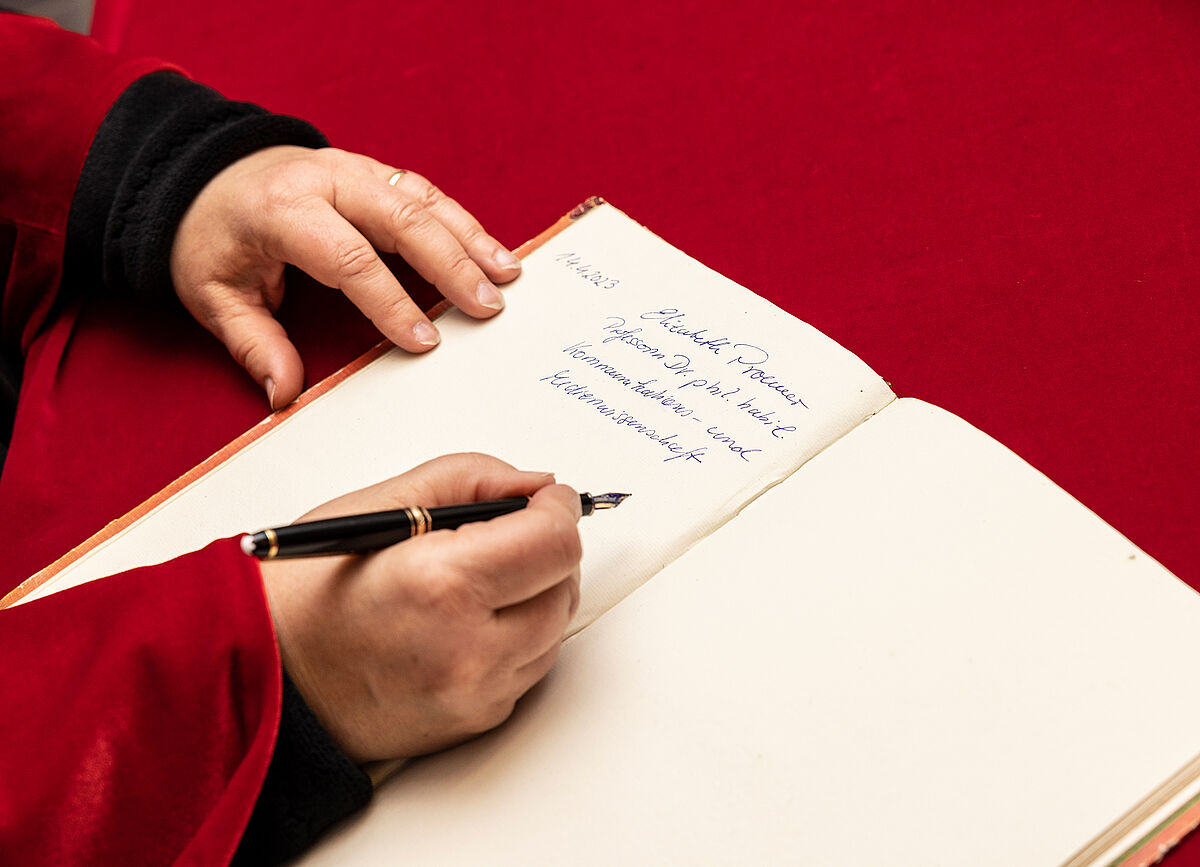 14.4.2023
Elizabeth Prommer
Professorin Dr. phil. habil.
Kommunikations- und
Medienwissenschaft